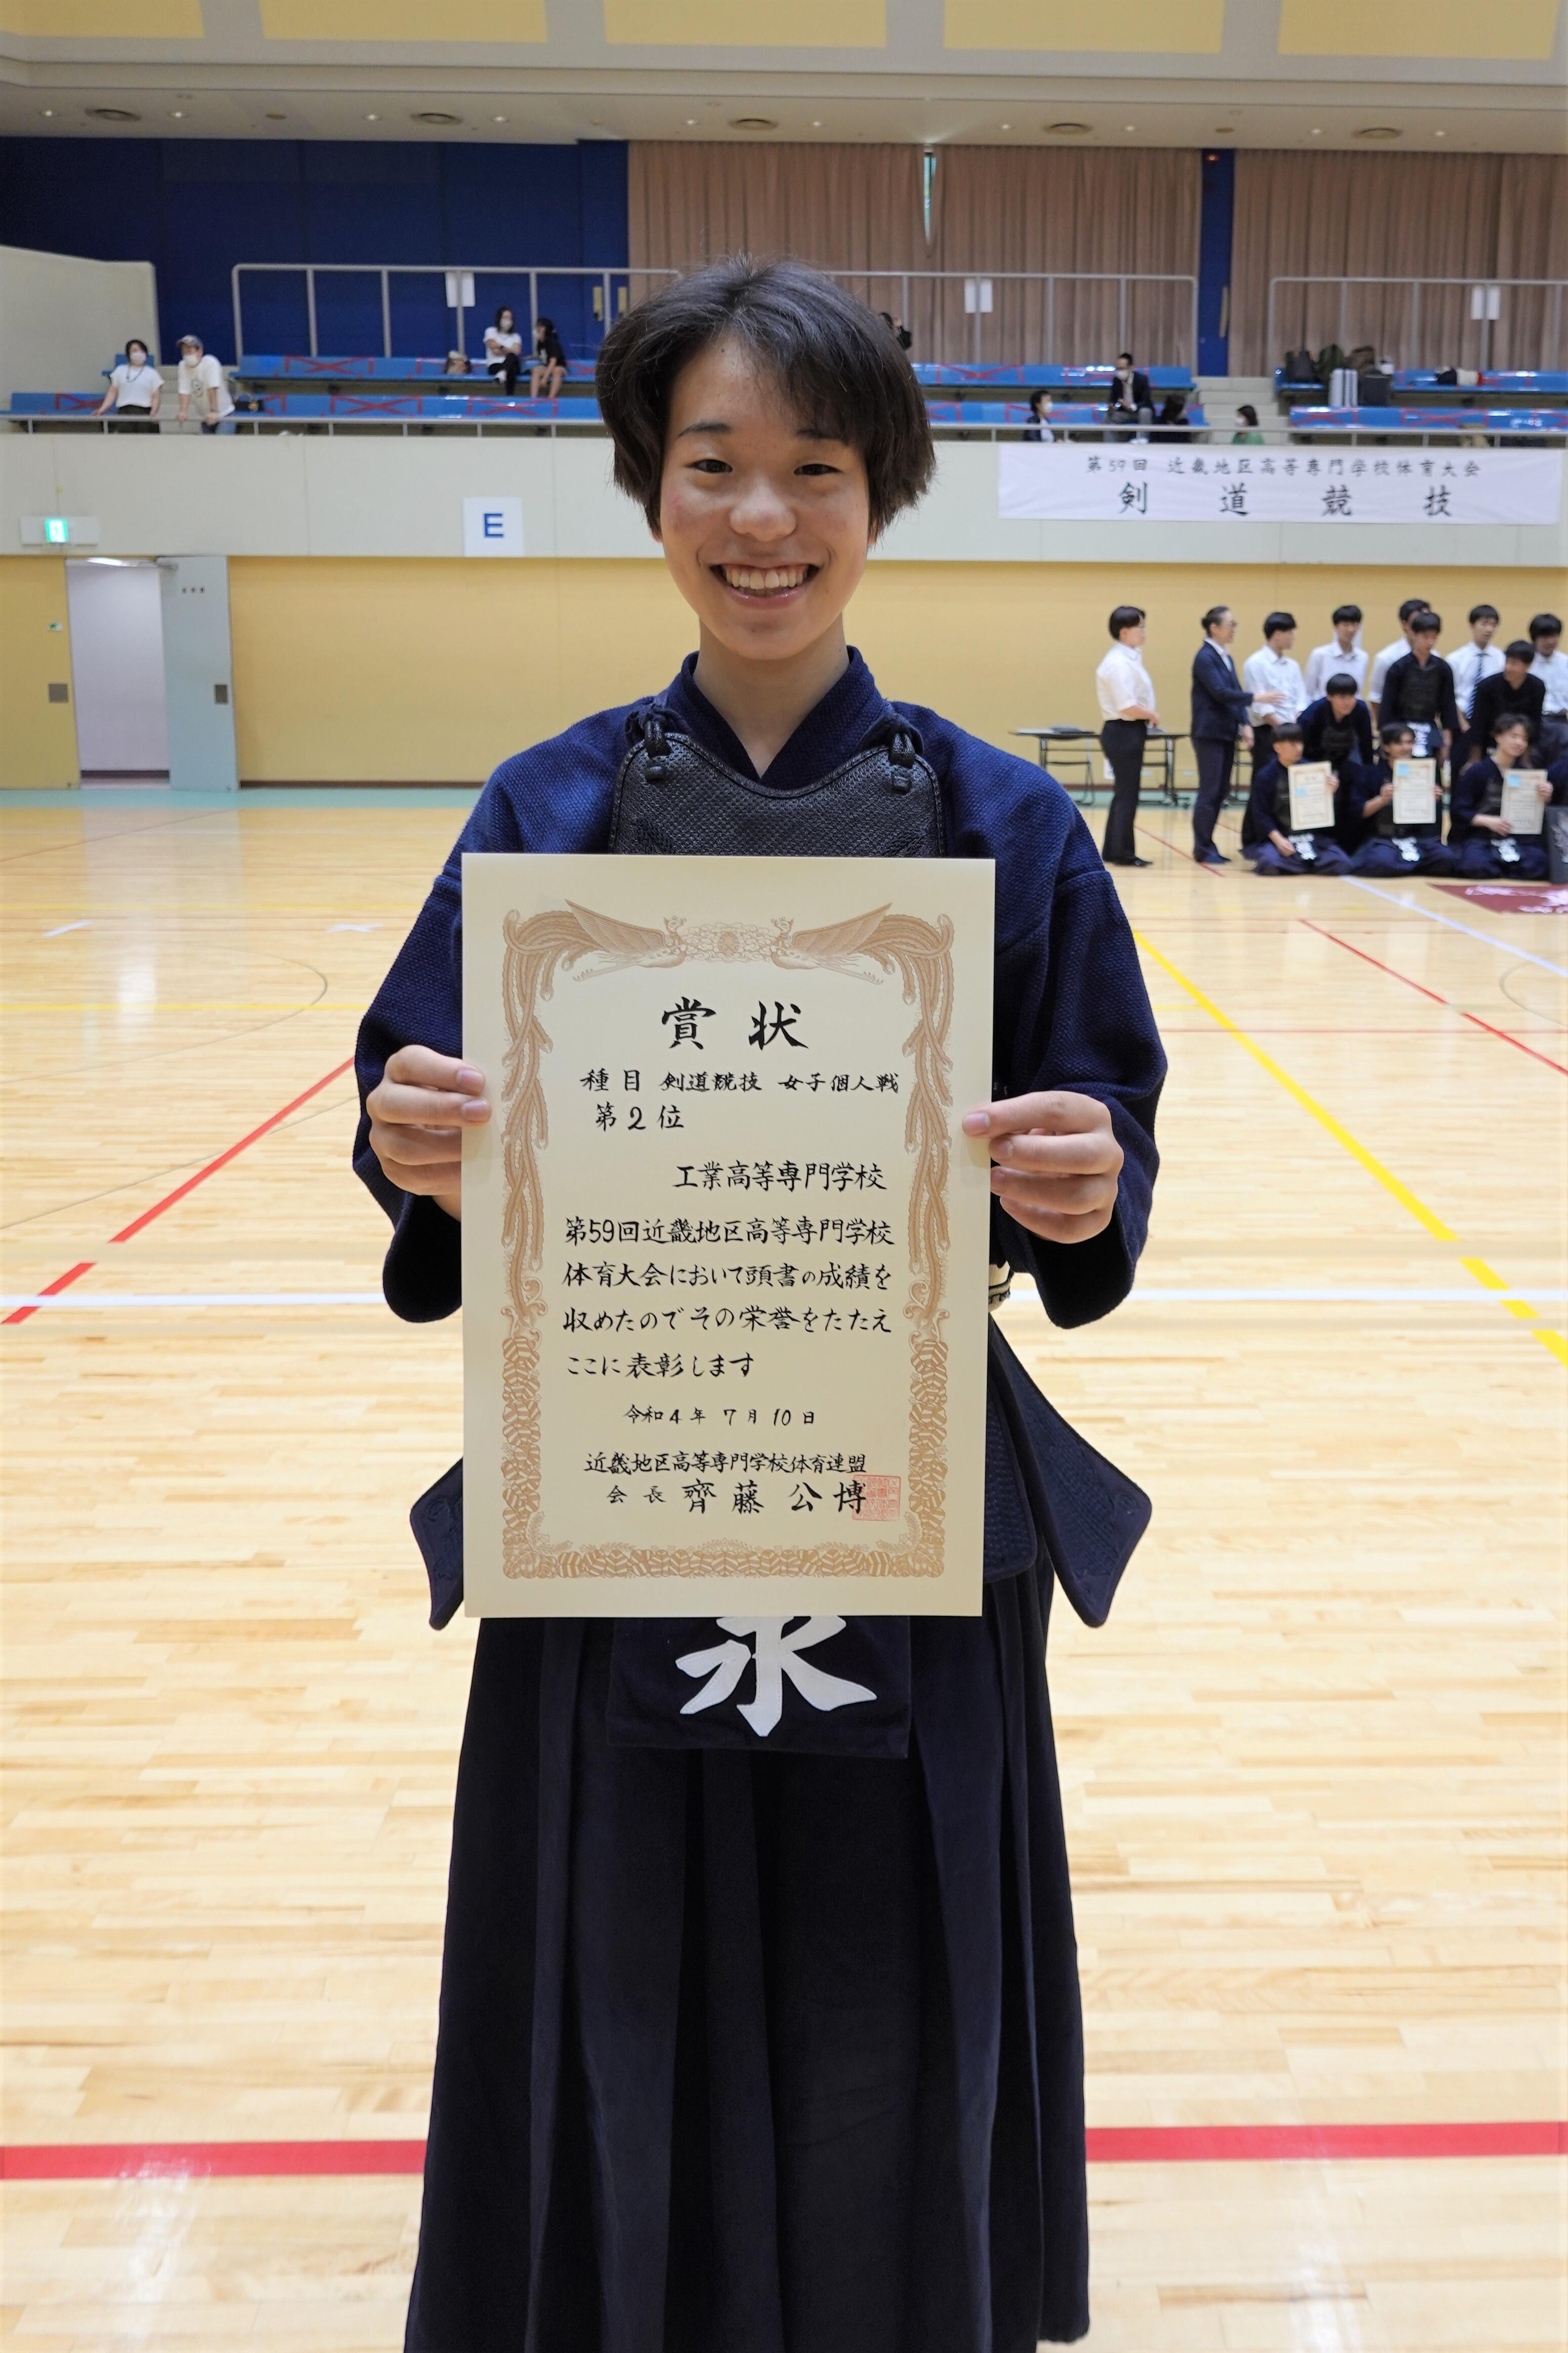 第59回 近畿地区高等専門学校体育大会
剣道競技
E
賞状
種目 剣道競技 女子個人戦
第2位
工業高等専門学校
第59回近畿地区高等専門学校
体育大会において頭書の成績を
収めたのでその栄誉をたたえ
ここに表彰します
令和4年7月10日
近畿地区高等専門学校体育連盟
会長 齊藤公博
永